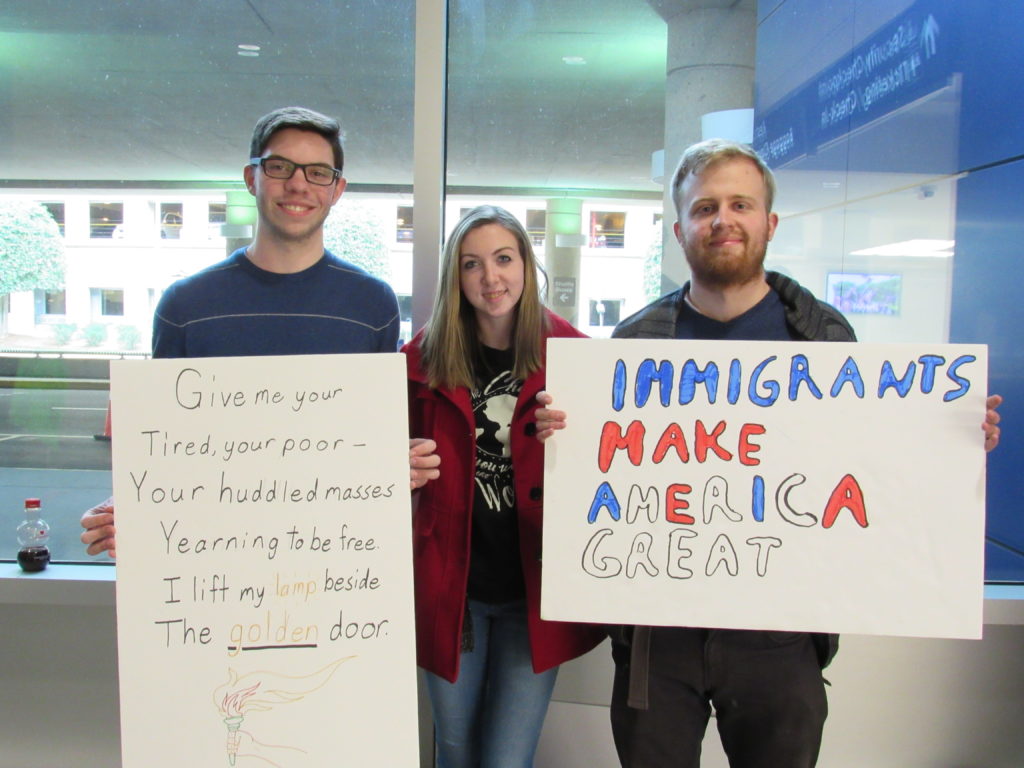 Give me your
Tired, your poor –
Your huddled masses
Yearning to be free.
I lift my lamp beside
The golden door.
IMMIGRANTS
MAKE
AMERICA
GREAT
Security Checkpoint
Ticketing / Check-in